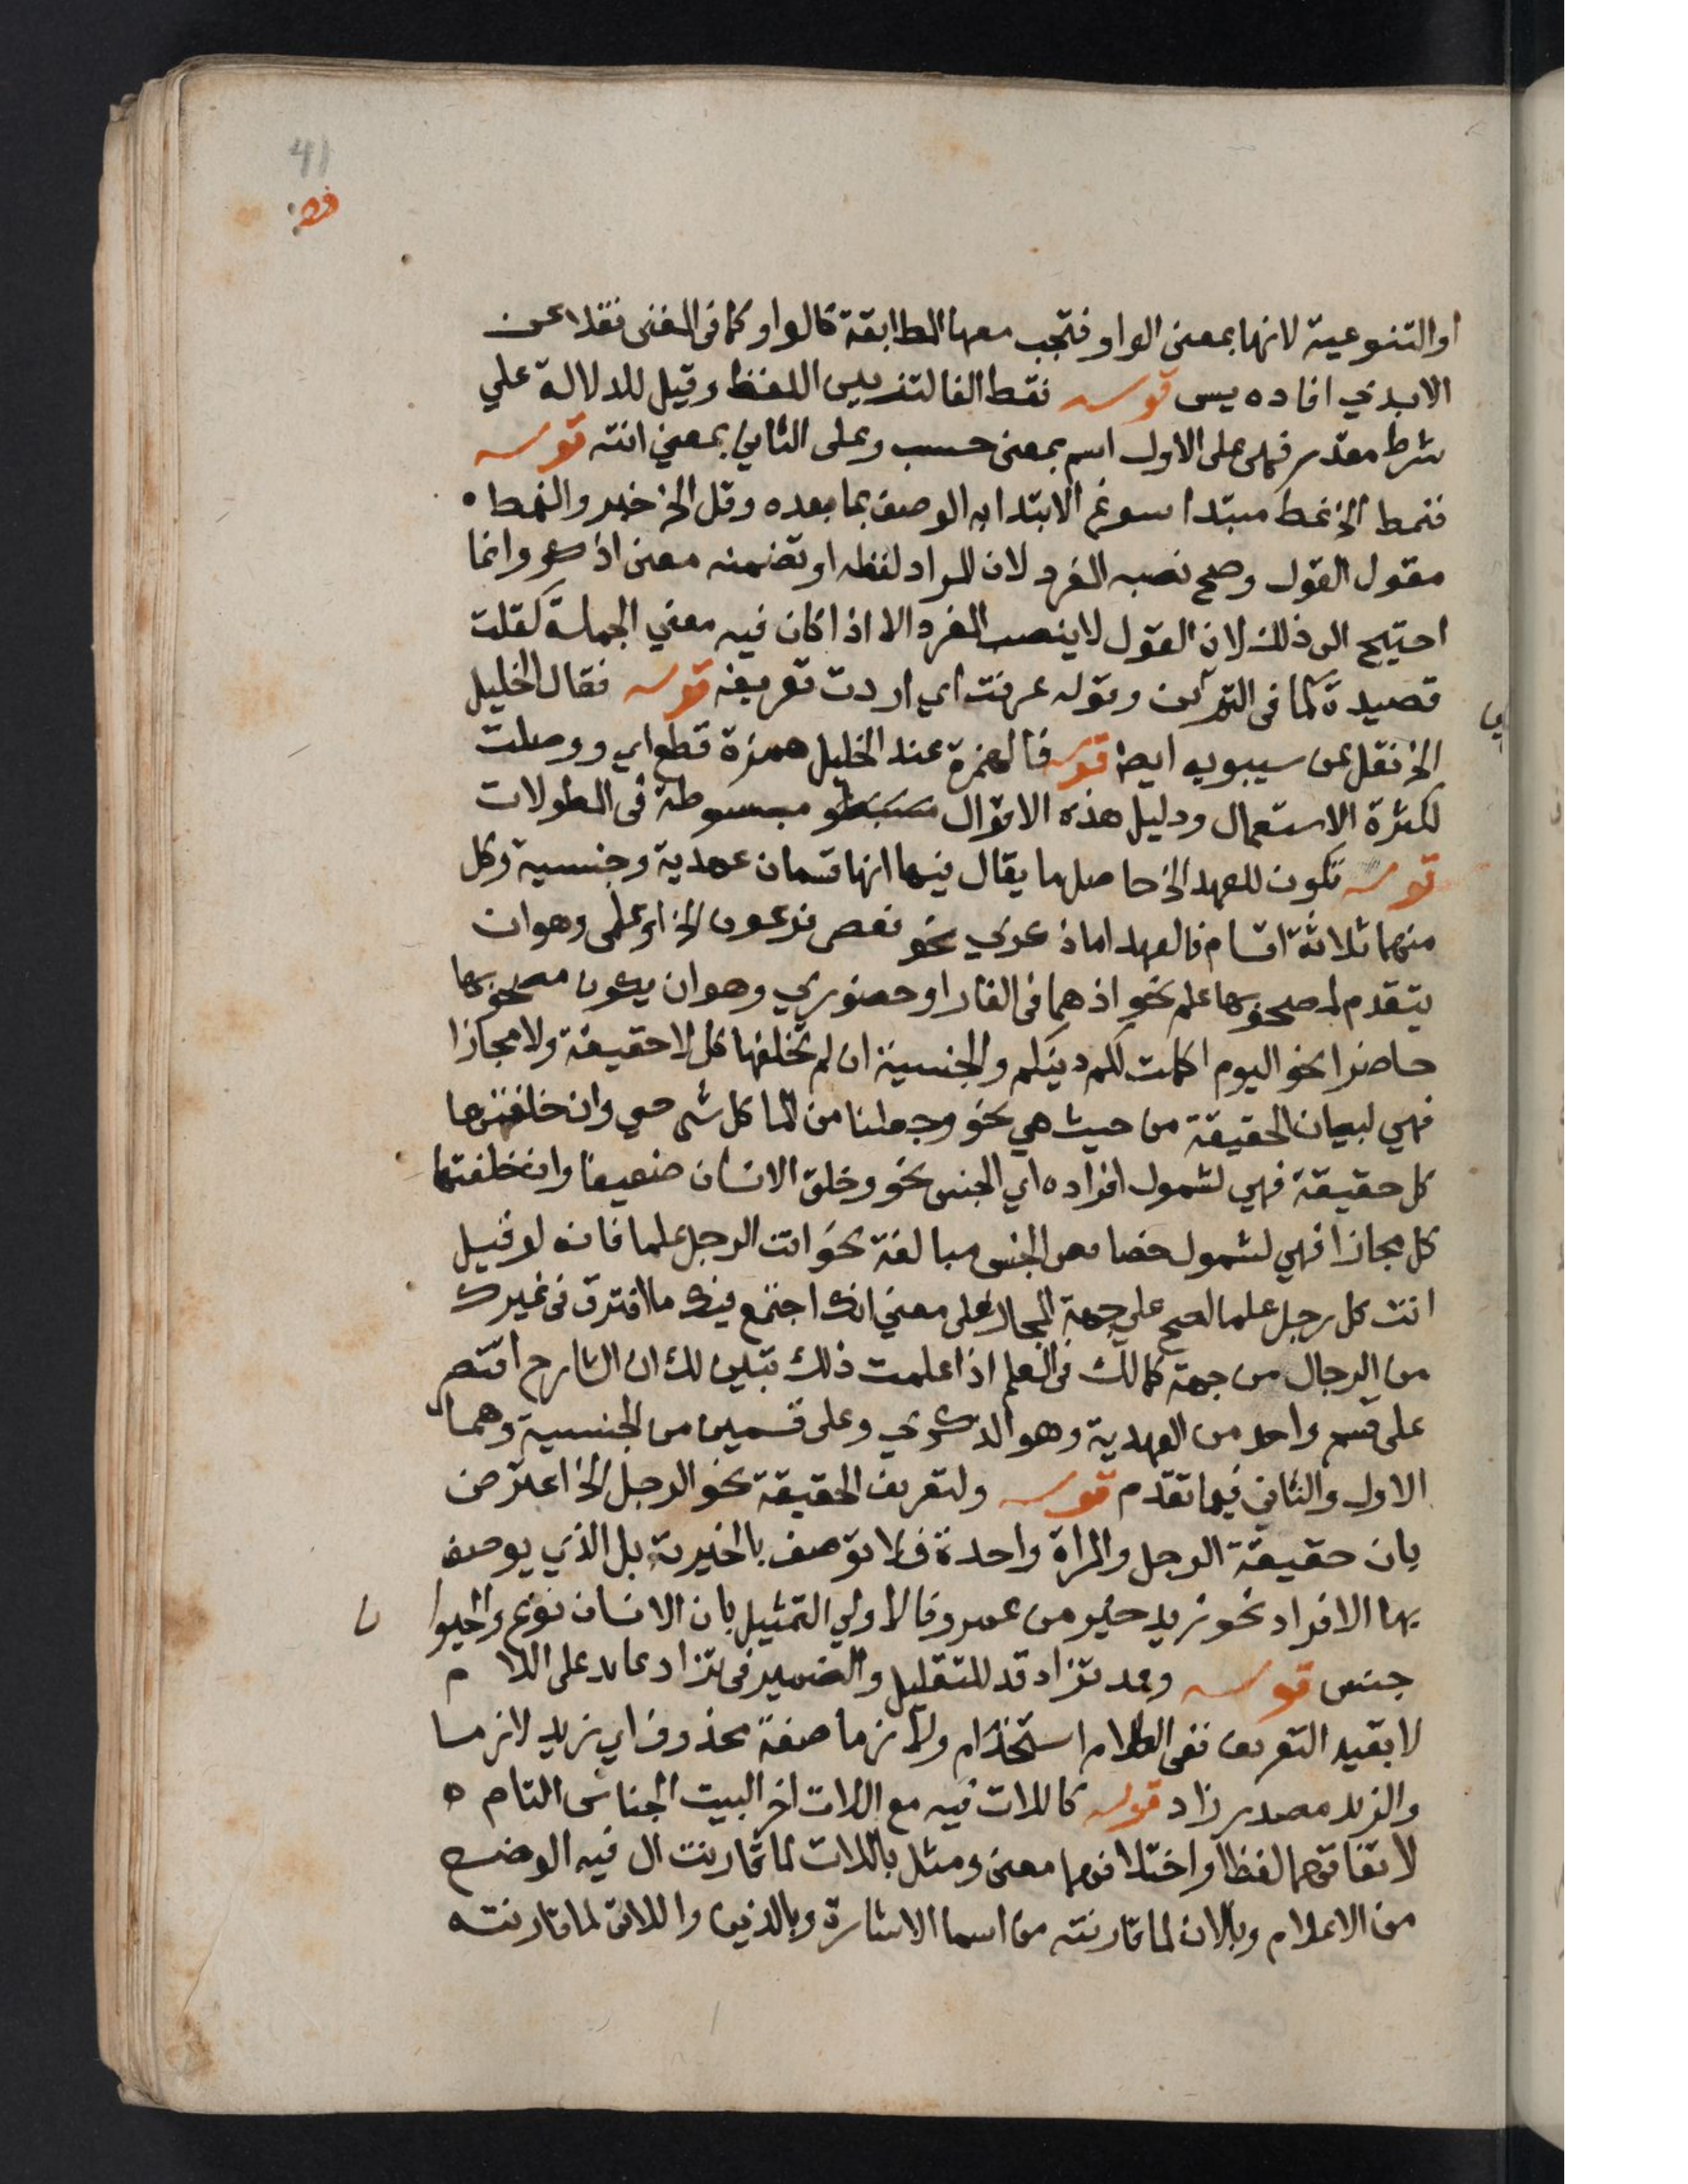 41
او التنوعية لانها بمعنى الواو فتجب معها المطابقة كالواو كما فى المغنى نقلا عن
الابدي افاده يس قوله فقط الفا لتزيين اللفظ وقيل للدلالة علي
شرط مقدر فهى على الاول اسم بمعنى حسب وعلى الثاني بمعني انته قوله
فنمط الخ نمط مبتدا سوغ الابتدا به الوصف بما بعده وقل الخ خبر والنمط
مقول القول وصح نصبه المفرد لان المراد لفظه او تضمنه معنى اذكر وانما
احتيج الى ذلك لان القول لا ينصب المفرد الا اذا كان فيه معني الجملة كقلت
قصيدة كما فى وقوله عرفت اي اردت تعريفه قوله فقال الخليل
الخ نقل عن سيبويه ايضا قوله فالهمزة عند الخليل همزة قطع اي ووصلت
لكثرة الاستعمال ودليل هذه الاقوال مبسوطة فى المطولات
قوله تكون للعهد الخ حاصل ما يقال فيها انها قسمان عهدية وجنسية وكل
منهما ثلاثة اقسام فالعهد اما ذكري نحو فعصى فرعون الخ او علمى وهو ان
يتقدم لمصحوبها علم نحو اذ هما فى الغار او حضوري وهو ان يكون مصحوبها
حاضرا نحو اليوم اكملت لكم دينكم والجنسية ان لم تخلفها كل لا حقيقة ولا مجازا
فهي لبيان الحقيقة من حيث هي نحو وجعلنا من الما كل شى حي وان خلفتها
كل حقيقة فهي لشمول افراده اي الجنس نحو وخلق الانسان ضعيفا وان خلفتها
كل مجازا فهي لشمول خصايص الجنس مبالغة نحو انت الرجل علما فانه لو قيل
انت كل رجل علما لصح على جهة المجاز على معني انك اجتمع فيك ما افترق فى غيرك
من الرجال من جهة كمالك فى العلم اذا علمت ذلك تبين لك ان الشارح اقتصر
على قسم واحد من العهدية وهو الذكري وعلى قسمين من الجنسية وهما
الاول والثاني فيما تقدم قوله ولتعريف الحقيقة نحو الرجل الخ اعترض
بان حقيقة الرجل والمراة واحدة فلا توصف بالخيرية بل الذي يوصف
بها الافراد نحو زيد خير من عمرو فالاولي التمثيل بان الانسان نوع والحيوا
ن
جنس قوله وقد تزاد قد للتقليل والضمير فى تزاد عايد على اللام
لا بقيد التعريف ففى الكلام استخدام ولازما صفة محذوف اي زيد لازما
والزيد مصدر زاد قوله كاللات فيه مع اللات اخر البيت الجناس التام
لاتفاقهما لفظا واختلافهما معنى ومثل باللات لما قارنت ال فيه الوضع
من الاعلام وبالان لما قارنته من اسما الاشارة وبالذين واللاتى لما قارنته